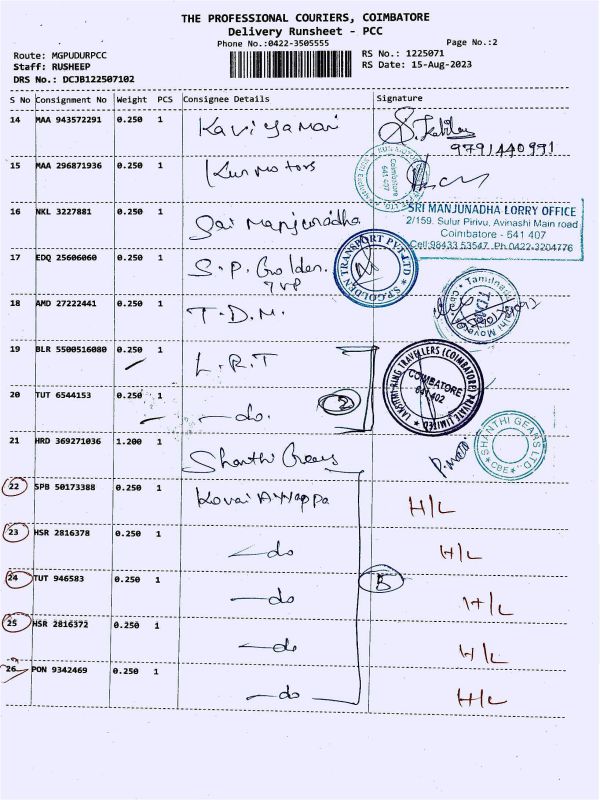 THE PROFESSIONAL COURIERS, COIMBATORE
Delivery Runsheet - PCC
Phone No.:0422-3505555
Page No.:2
Route: MGPUDURPCC
Staff: RUSHEEP
DRS No.: DCJB122507102
RS No.: 1225071
RS Date: 15-Aug-2023
S No Consignment No Weight PCS Consignee Details Signature
14 MAA 943572291 0.250 1
9791440991
15 MAA 296871936 0.250 1 Motors
COIMBATORE
641 407
16 NKL 3227881 0.250 1 Sai Manjunadha
SRI MANJUNADHA LORRY OFFICE
2/159, Sulur Pirivu, Avinashi Main road
Coimbatore - 641 407
Cell:98433 53547, Ph.0422-3204776
17 EDQ 25606060 0.250 1 S.P. Golden
S.P.GOLDEN TRANSPORT PVT LTD
18 AMD 27222441 0.250 1 T.D.M.
Tamilnadu Delhi Movers
19 BLR 5500516080 0.250 1 L.R.T
LAKSHMI RING TRAVELLERS (COIMBATORE) PRIVATE LIMITED
COIMBATORE
641 402
20 TUT 6544153 0.250 1 do. 2
21 HRD 369271036 1.200 1 Shanthi Gears
SHANTHI GEARS LTD
CBE
22 SPB 50173388 0.250 1 Kovai Ayyappa H/L
23 HSR 2816378 0.250 1 do H/L
24 TUT 946583 0.250 1 do 5 H/L
25 HSR 2816372 0.250 1 do H/L
26 PON 9342469 0.250 1 do H/L